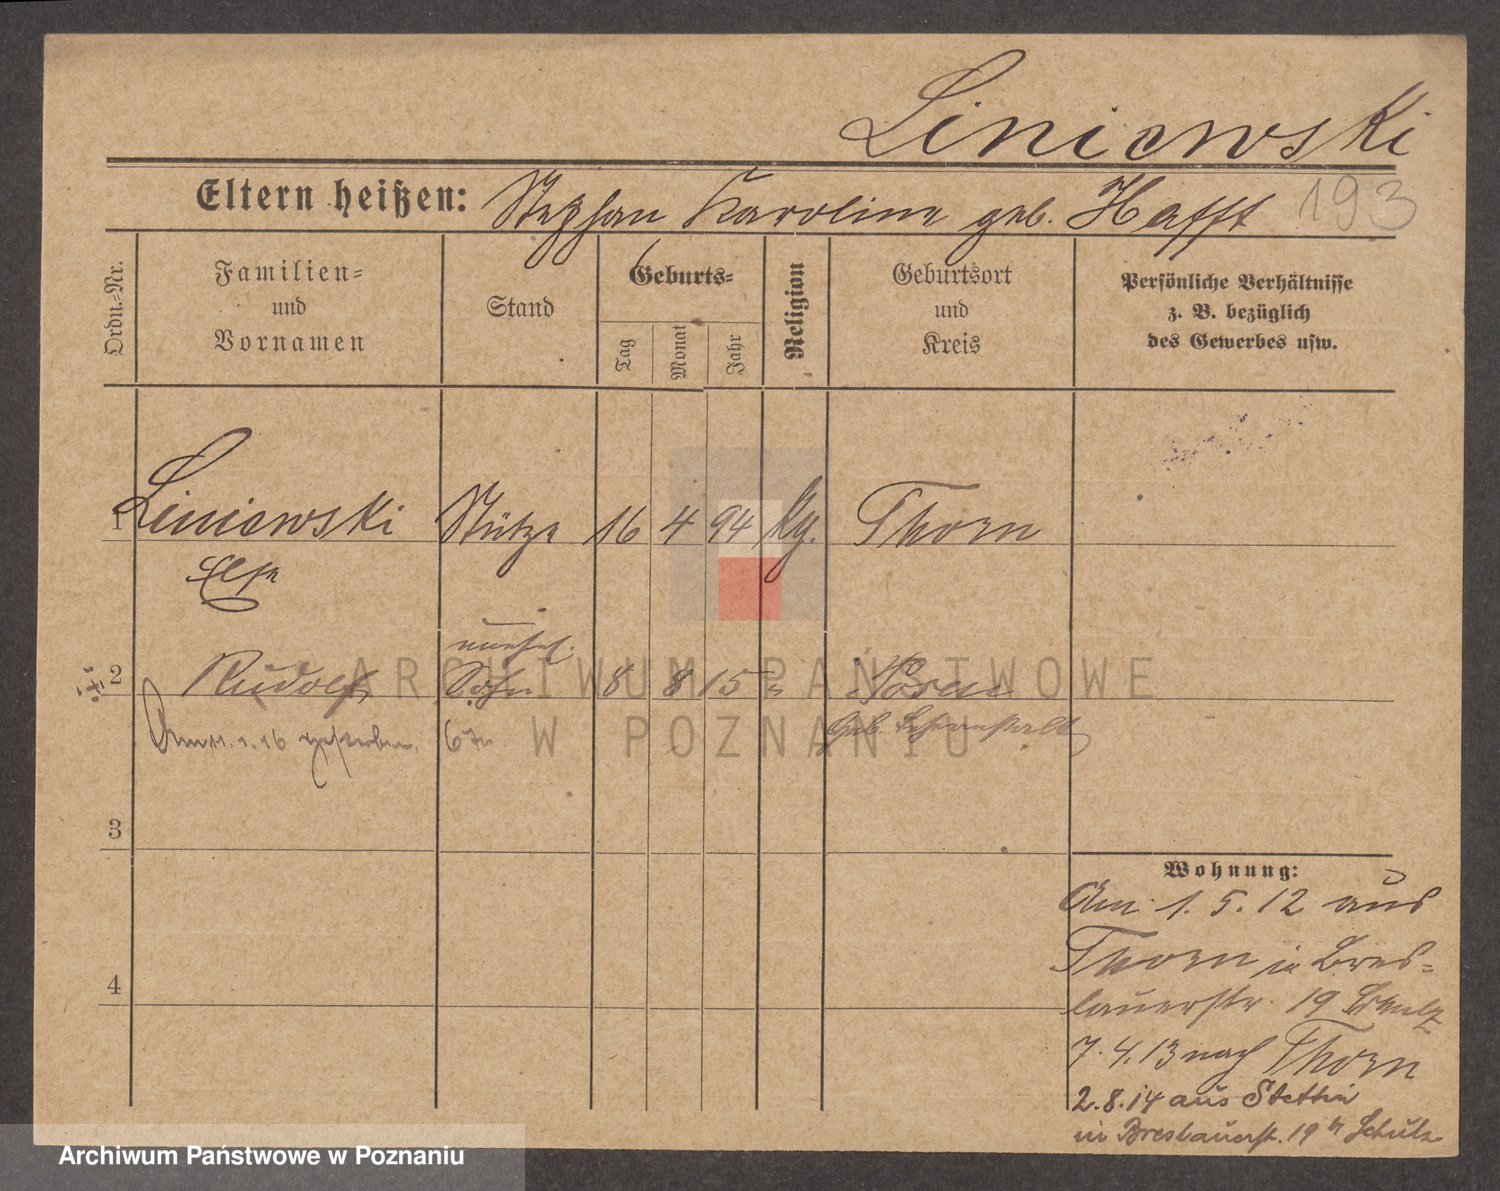 Liniewski
193
Eltern heißen: Stephan Karoline geb. Hafft
Ordn.=Nr.
Familien=
und
Vornamen
Stand
Geburts=
Tag
Monat
Jahr
Religion
Geburtsort
und
Kreis
Persönliche Verhältnisse
z. B. bezüglich
des Gewerbes usw.
1 Liniewski Stütze 16 4 94 Thorn
Else
unehel.
2 Rudolf Sohn 8 8 15 Posen
1. 16 gestorben.
Geb.
3
4
Wohnung:
Am 1. 5. 12 aus
Thorn in Bres=
lauerstr. 19 Schulz
7. 4. 13 nach Thorn
2. 8. 14 aus Stettin
in Breslauerst. 19 b Schulz
ARCHIWUM PAŃSTWOWE
W POZNANIU
Archiwum Państwowe w Poznaniu